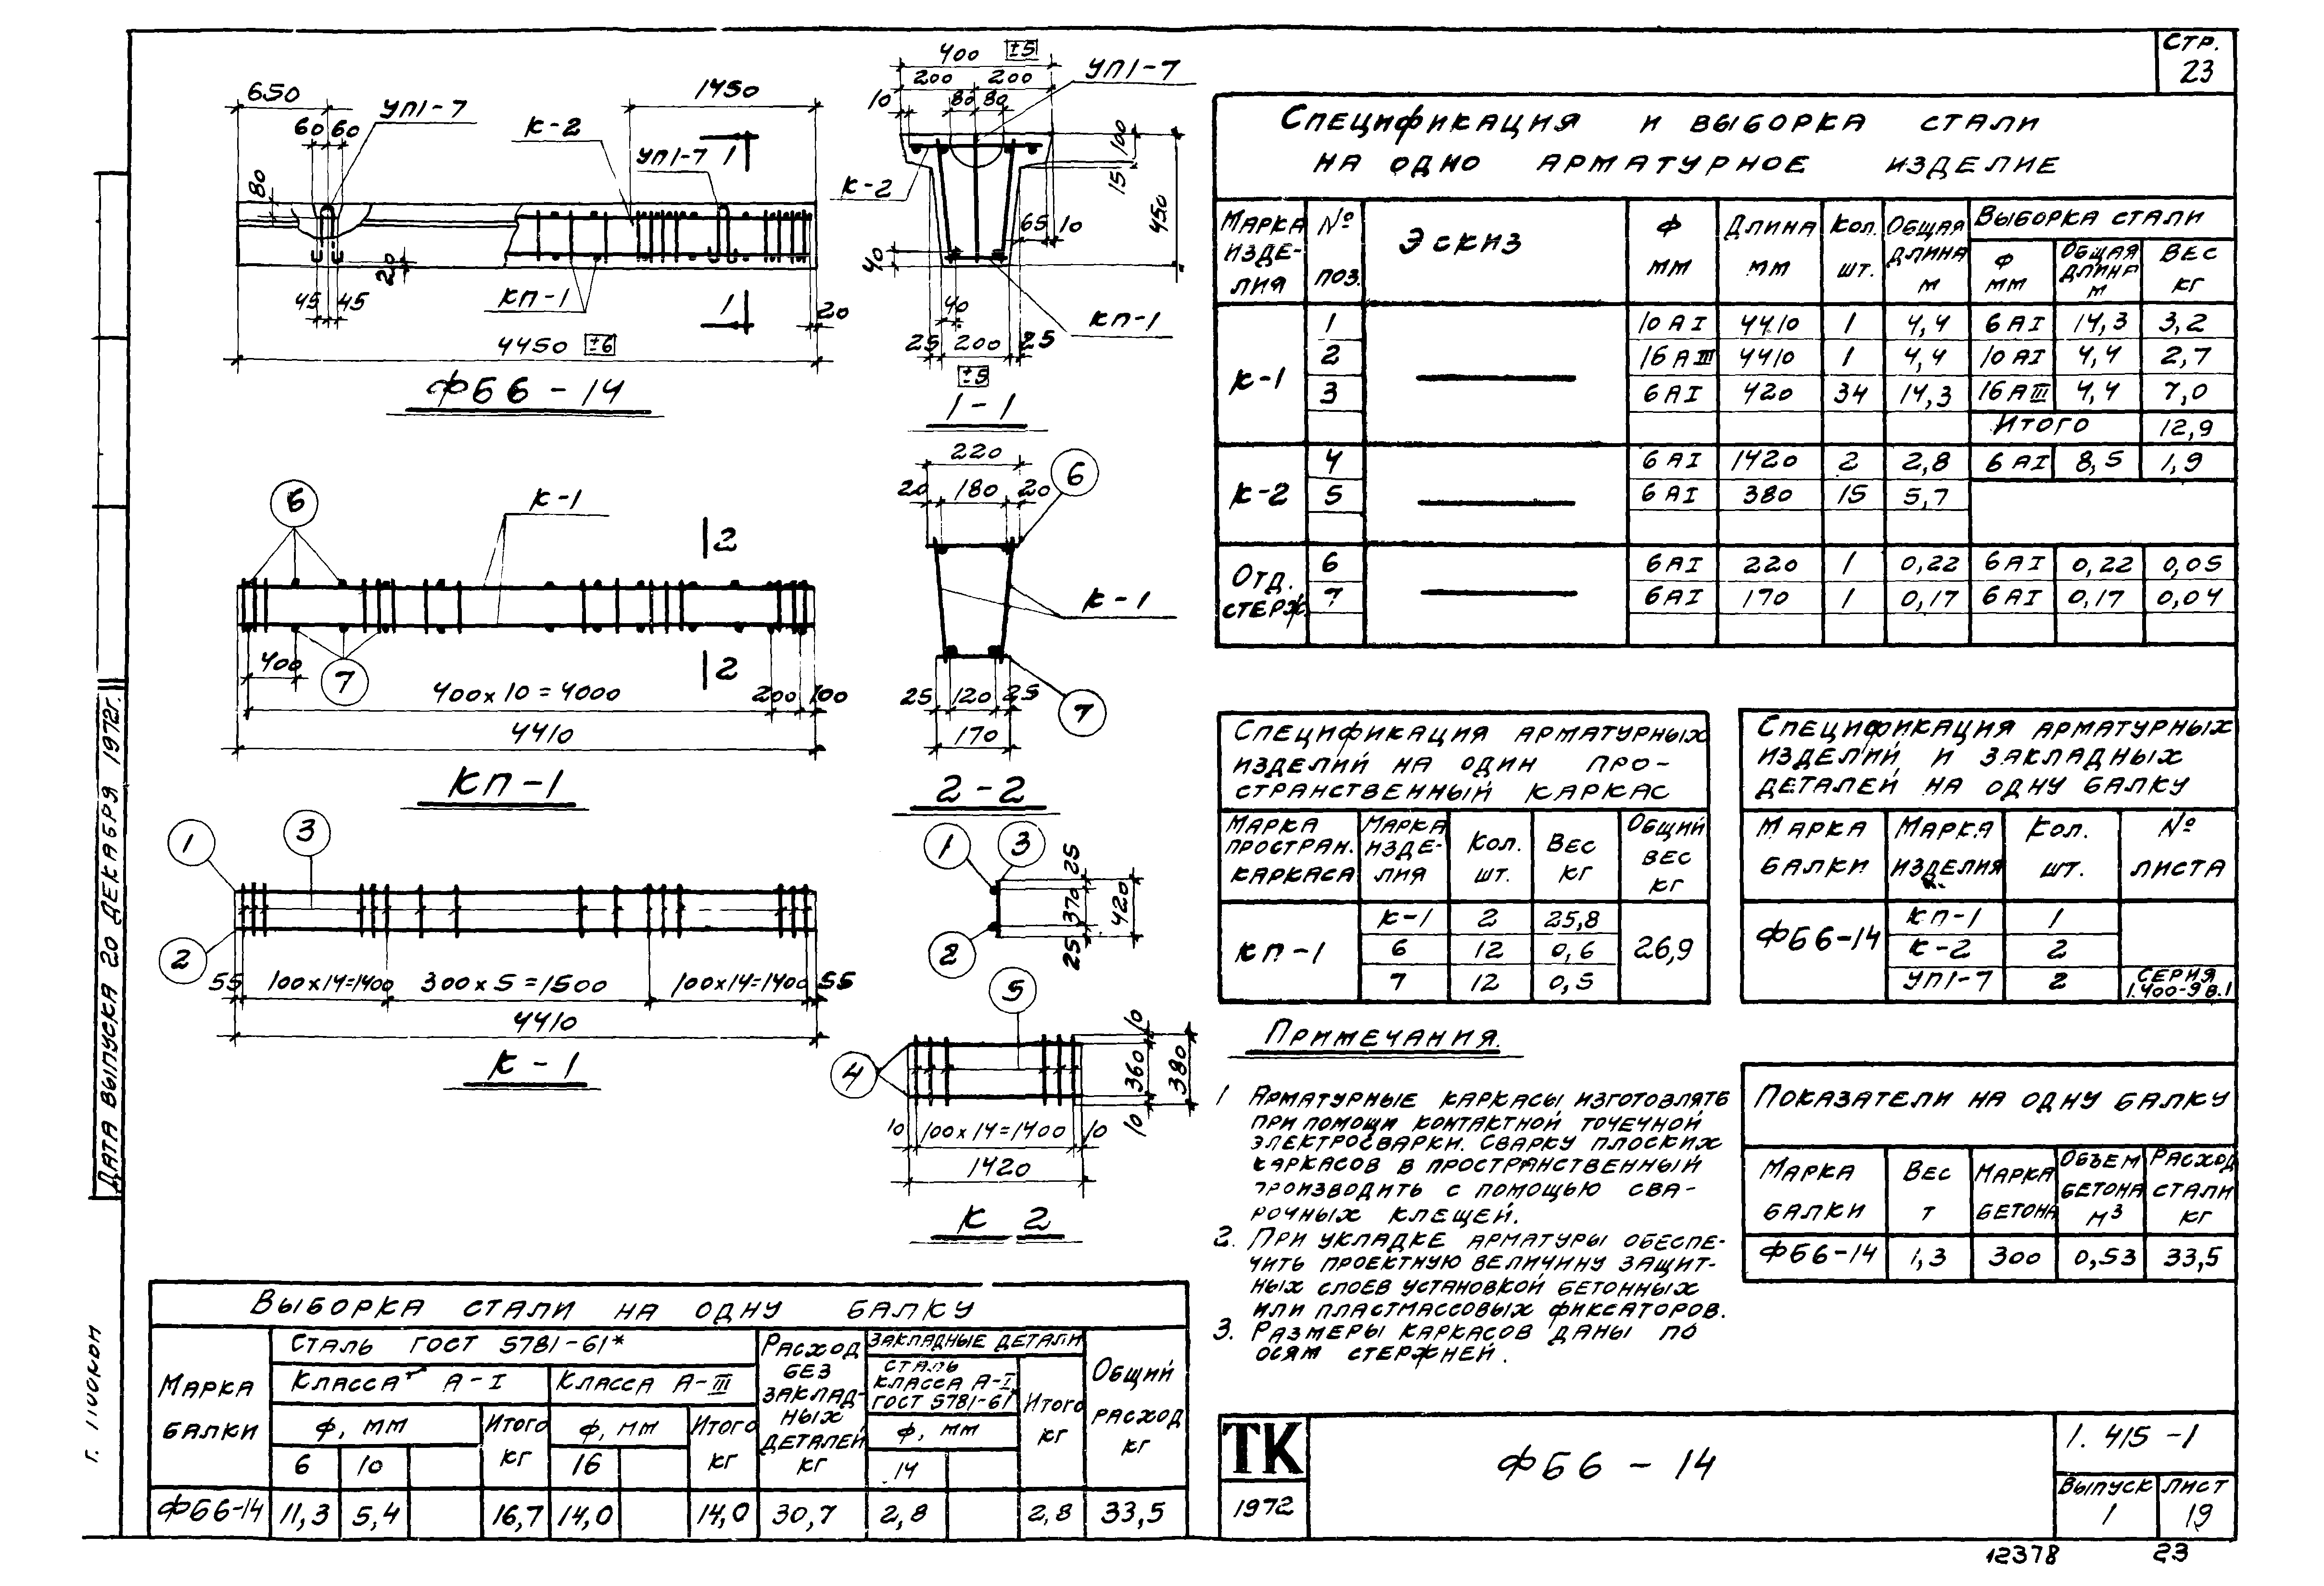 СТР.
23
650
1450
УП1-7
60 60
К-2
УП1-7
1
80
20
45 45
КП-1
1
20
4450 ±6
ФБ6-14
400 ±5
200 200
УП1-7
10
80 80
100
15
К-2
450
65 10
40
40
КП-1
25 200 25
±5
1-1
6
К-1
2
400
7
2
400х10=4000
200 100
4410
КП-1
220
6
20 180 20
К-1
25 120 25
7
170
2-2
1
3
2
55 100х14=1400 300х5=1500 100х14=1400 55
4410
К-1
1 3
25
370
420
2
25
5
4
10
360
380
10
10 100х14=1400 10
1420
К 2
СПЕЦИФИКАЦИЯ И ВЫБОРКА СТАЛИ
НА ОДНО АРМАТУРНОЕ ИЗДЕЛИЕ
МАРКА ИЗДЕ-ЛИЯ № ПОЗ. ЭСКИЗ Ф ММ ДЛИНА ММ КОЛ. ШТ. ОБЩАЯ ДЛИНА М ВЫБОРКА СТАЛИ
Ф ММ ОБЩАЯ ДЛИНА М ВЕС КГ
К-1 1 10АI 4410 1 4,4 6АI 14,3 3,2
2 16АIII 4410 1 4,4 10АI 4,4 2,7
3 6АI 420 34 14,3 16АIII 4,4 7,0
ИТОГО 12,9
К-2 4 6АI 1420 2 2,8 6АI 8,5 1,9
5 6АI 380 15 5,7
ОТД. СТЕРЖ. 6 6АI 220 1 0,22 6АI 0,22 0,05
7 6АI 170 1 0,17 6АI 0,17 0,04
СПЕЦИФИКАЦИЯ АРМАТУРНЫХ
ИЗДЕЛИЙ НА ОДИН ПРО-
СТРАНСТВЕННЫЙ КАРКАС
МАРКА ПРОСТРАН. КАРКАСА МАРКА ИЗДЕ-ЛИЯ КОЛ. ШТ. ВЕС КГ ОБЩИЙ ВЕС КГ
КП-1 К-1 2 25,8 26,9
6 12 0,6
7 12 0,5
СПЕЦИФИКАЦИЯ АРМАТУРНЫХ
ИЗДЕЛИЙ И ЗАКЛАДНЫХ
ДЕТАЛЕЙ НА ОДНУ БАЛКУ
МАРКА БАЛКИ МАРКА ИЗДЕЛИЯ КОЛ. ШТ. № ЛИСТА
ФБ6-14 КП-1 1
К-2 2
УП1-7 2 СЕРИЯ 1.400-9 В.1
ПРИМЕЧАНИЯ.
1 АРМАТУРНЫЕ КАРКАСЫ ИЗГОТОВЛЯТЬ
ПРИ ПОМОЩИ КОНТАКТНОЙ ТОЧЕЧНОЙ
ЭЛЕКТРОСВАРКИ. СВАРКУ ПЛОСКИХ
КАРКАСОВ В ПРОСТРАНСТВЕННЫЙ
ПРОИЗВОДИТЬ С ПОМОЩЬЮ СВА-
РОЧНЫХ КЛЕЩЕЙ.
2. ПРИ УКЛАДКЕ АРМАТУРЫ ОБЕСПЕ-
ЧИТЬ ПРОЕКТНУЮ ВЕЛИЧИНУ ЗАЩИТ-
НЫХ СЛОЕВ УСТАНОВКОЙ БЕТОННЫХ
ИЛИ ПЛАСТМАССОВЫХ ФИКСАТОРОВ.
3. РАЗМЕРЫ КАРКАСОВ ДАНЫ ПО
ОСЯМ СТЕРЖНЕЙ.
ПОКАЗАТЕЛИ НА ОДНУ БАЛКУ
МАРКА БАЛКИ ВЕС Т МАРКА БЕТОНА ОБЪЕМ БЕТОНА М3 РАСХОД СТАЛИ КГ
ФБ6-14 1,3 300 0,53 33,5
ВЫБОРКА СТАЛИ НА ОДНУ БАЛКУ
МАРКА БАЛКИ СТАЛЬ ГОСТ 5781-61* РАСХОД БЕЗ ЗАКЛАД-НЫХ ДЕТАЛЕЙ КГ ЗАКЛАДНЫЕ ДЕТАЛИ ОБЩИЙ РАСХОД КГ
КЛАССА А-I КЛАССА А-III СТАЛЬ КЛАССА А-I ГОСТ 5781-61* ИТОГО КГ
Ф, ММ ИТОГО КГ Ф, ММ ИТОГО КГ Ф, ММ
6 10 16 14
ФБ6-14 11,3 5,4 16,7 14,0 14,0 30,7 2,8 2,8 33,5
ТК
1972
ФБ6-14
1.415-1
ВЫПУСК 1
ЛИСТ 19
12378 23
ДАТА ВЫПУСКА 20 ДЕКАБРЯ 1972г.